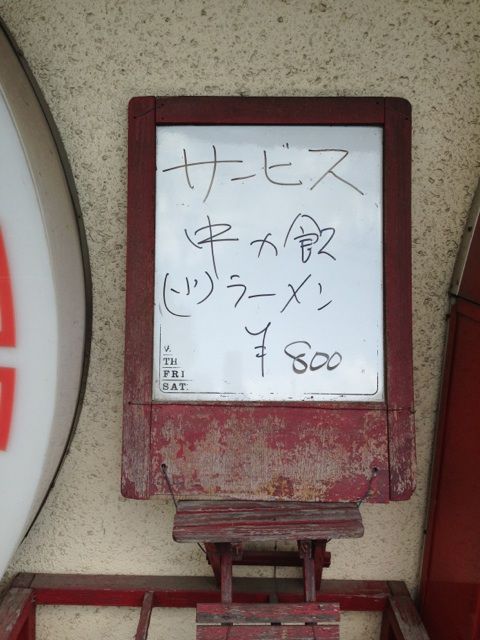 サービス
中カ飯
(小)ラーメン
¥800
TH
FRI
SAT.